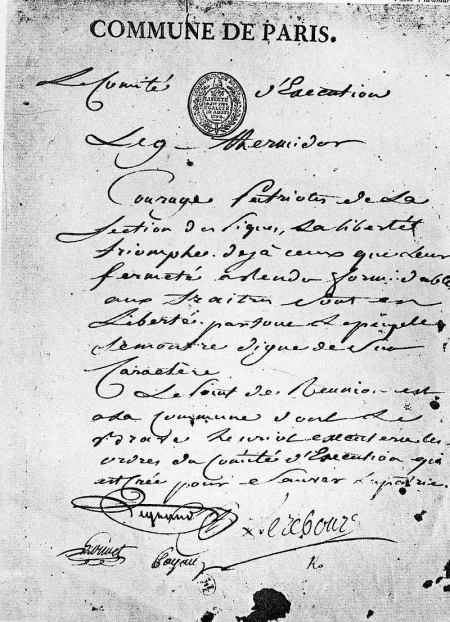 COMMUNE DE PARIS.
Le Comité d'Execution
LIBERTÉ
EGALITÉ
Le 9 thermidor
Courage Patriotes de La
Section des Piques, La libertét
triomphe deja ceux que Leur
fermeté a rendu formidable
aux traitres sont en
Liberté partout Le peuple
se montre digne de Son
Caractère
Le Point de Reunion est
a La Commune dont Le
brave henriot executera Les
ordres du Comité d'Execution qui
est Crée pour Sauver La patrie.
Legrand
Lerebours
Louvet Payan
Ro